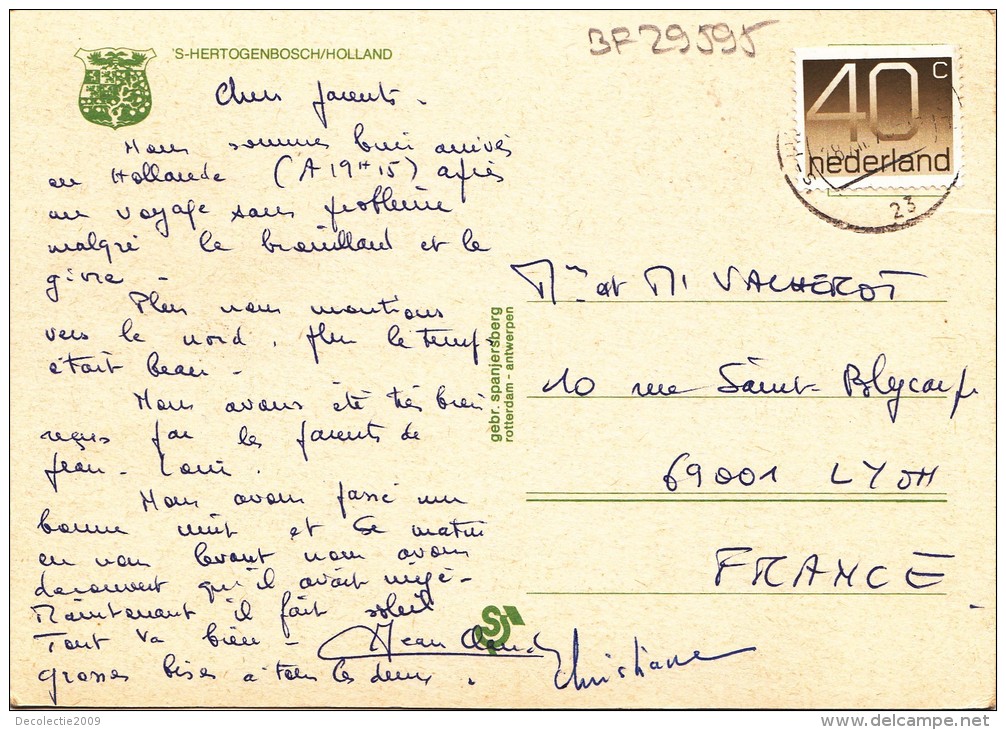 BF29595
'S-HERTOGENBOSCH/HOLLAND
40 c
nederland
23
Chers parents.
Nous sommes bien arrivés
en Hollande (A 19H15) après
un voyage sans problème
malgré le brouillard et le
givre -
Plus nous montions
vers le nord, plus le temps
était beau -
Nous avons été très bien
reçus par les parents de
Jean-Louis.
Nous avons passé une
bonne nuit et ce matin
en nous levant nous avons
découvert qu'il avait neigé -
Maintenant il fait soleil
Tout va bien -
grosses bises à tous les deux.
Jean Claude
Christiane
gebr. spanjersberg
rotterdam - antwerpen
Mme et Mr VACHEROT
10 rue Saint-Polycarpe
69001 LYON
FRANCE
Decolectie2009
www.delcampe.net